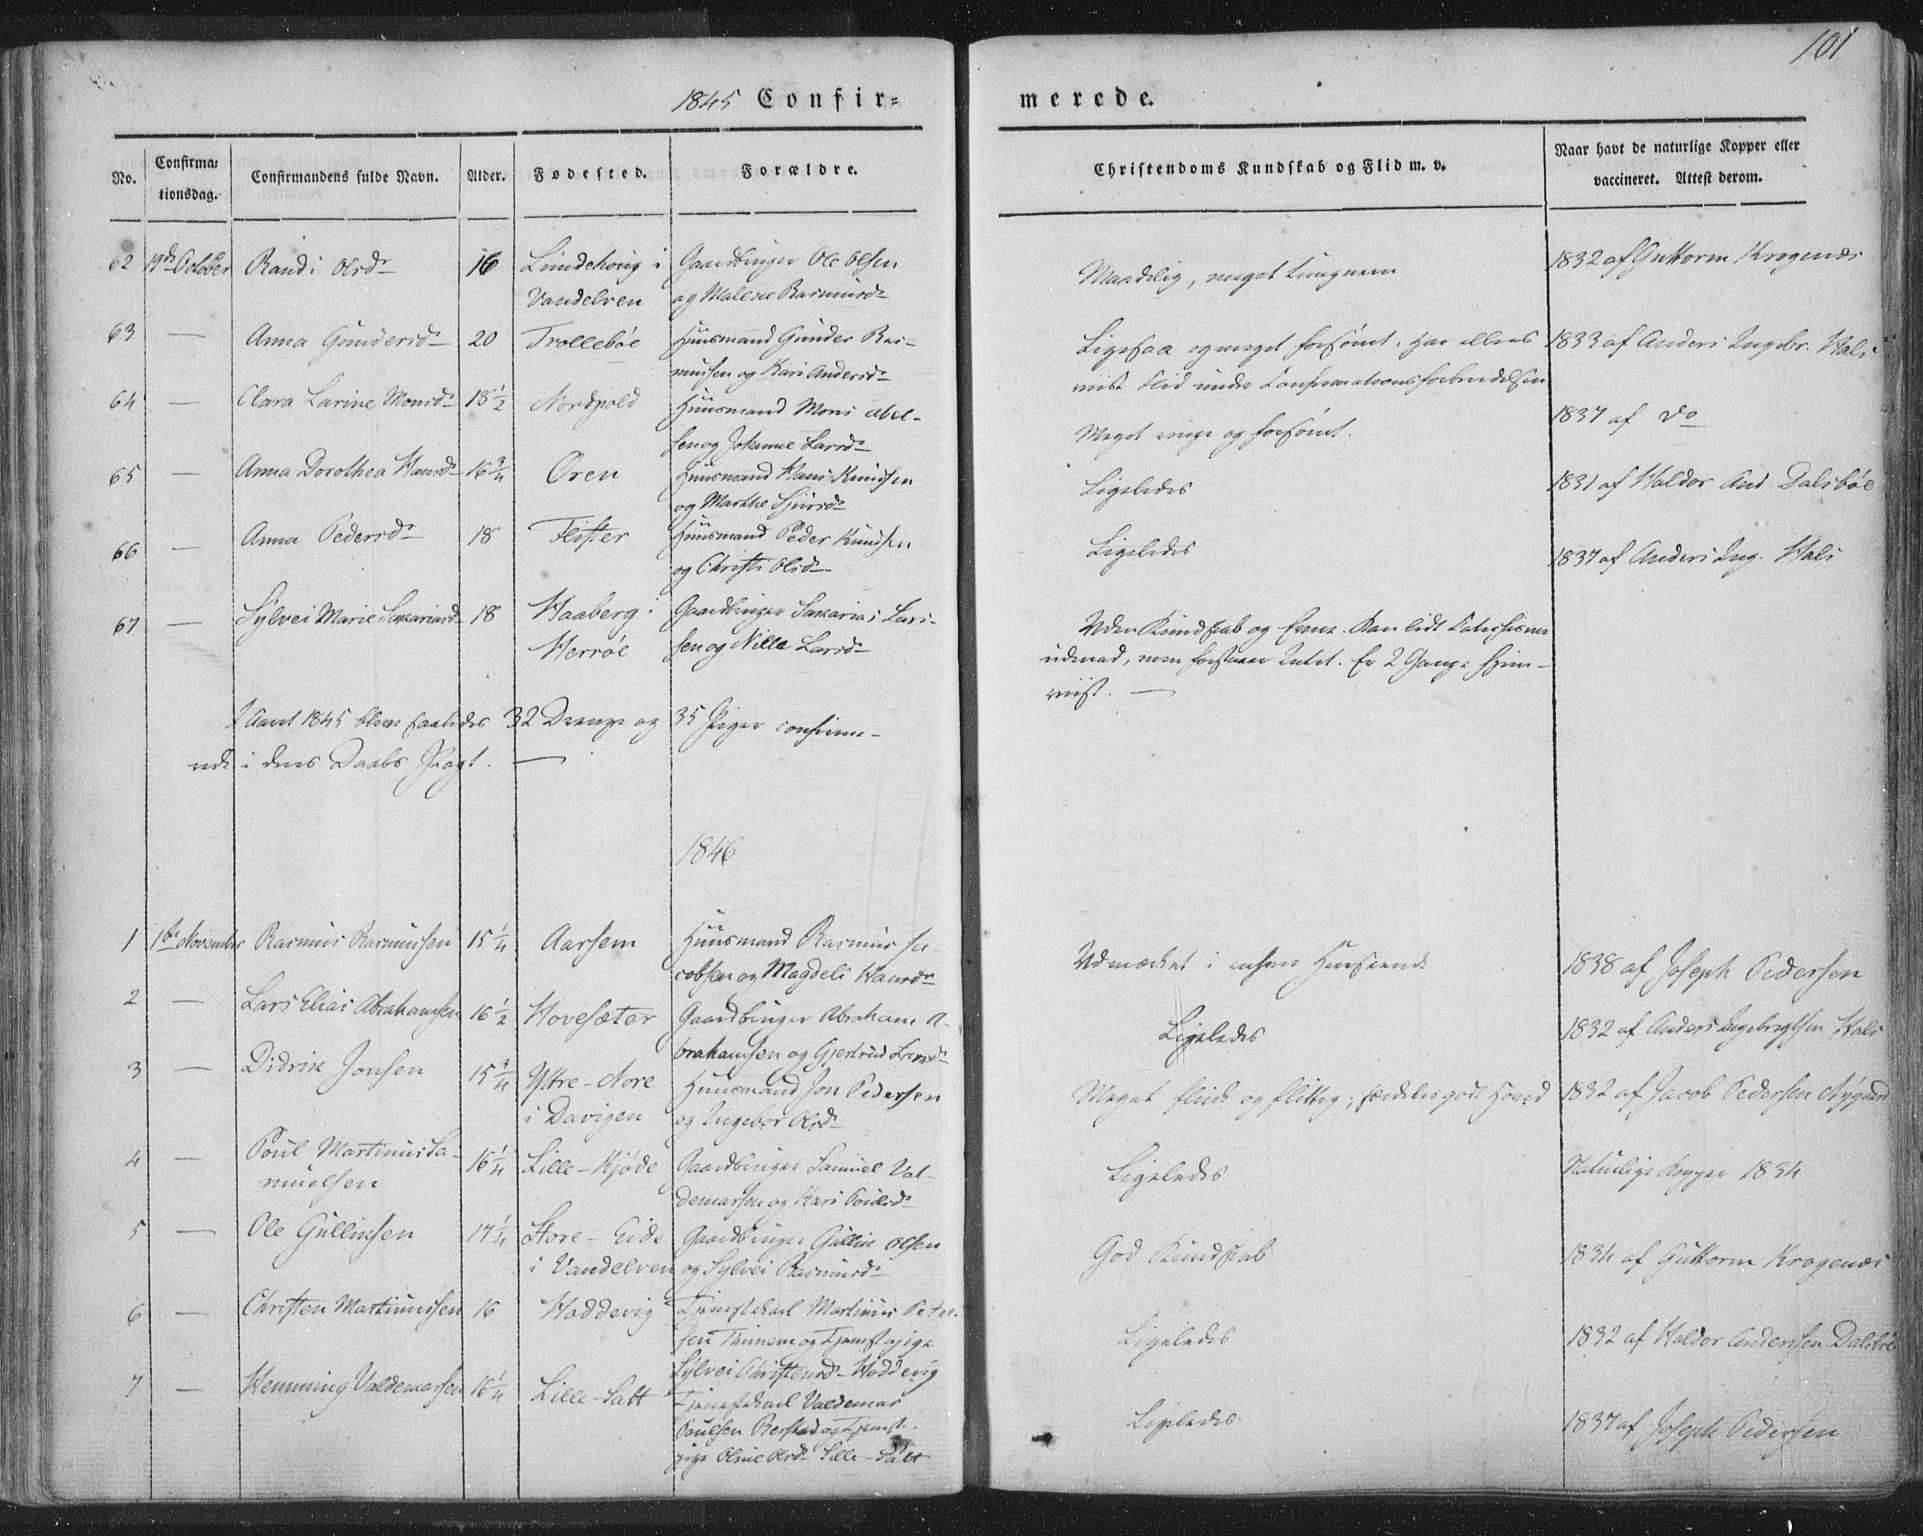 101
1845 Confir=
merede.
No.
Confirma=
tionsdag.
Confirmandens fulde Navn.
Alder.
Fødested.
Forældre.
Christendoms Kundskab og Flid m. v.
Naar havt de naturlige Kopper eller
vaccineret. Attest derom.
62 19de October Randi Olsdr 16 Lündehoug i Gaardbruger Ole Olsen
Vandelven og Malene Rasmusdr
Maadelig, meget tungnem
1832 af Guttorm Krogenæs
63 — Anna Gündersdr 20 Trollebøe Huusmand Günder Ras-
mussen og Kari Andersdr
Ligesaa og meget forsømt. Har ellers
viist Flid under Confirmationsforberedelsen
1833 af Anders Ingebr. Hals
64 — Clara Larine Monsdr 18½ Nordpold Huusmand Mons Abel-
sen og Johanne Larsdr
Meget ringe og forsømt.
1837 af do
65 — Anna Dorothea Hansdr 16¾ Øren Huusmand Hans Knudsen
og Marthe Sjursdr
Ligeledes
1831 af Haldor And. Dalsbøe
66 — Anna Pedersdr 18 Flister Huusmand Peder Knudsen
og Christi Olsdr
Ligeledes
1837 af Anders Ing. Hals
67 — Sylvei Marie Sakariasdr 18 Haaberg i Gaardbruger Sakarias Lar-
Herrøe sen og Nille Larsdr
Uden Kundskab og Evne. Kan lidt Catechismen
udenad, men forstaaer Intet. Er 2 Gange hjem-
viist. —
I Aaret 1845 bleve saaledes 32 Drenge og 35 Piger confirme-
rede i deres Daabs Pagt. —
1846
1 1ste November Rasmus Rasmussen 15¼ Aarsem Huusmand Rasmus Ja-
cobsen og Magdeli Hansdr
Udmærket i enhver Henseende
1838 af Joseph Pedersen
2 — Lars Elias Abrahamsen 16½ Hovesæter Gaardbruger Abraham A-
brahamsen og Gjertrud Larsdr
Ligeledes
1832 af Anders Ingebregtsen Hals
3 — Didrik Jonsen 15¾ Ytre-Nore Huusmand Jon Pedersen
i Davigen og Ingebor Olsdr
Meget flink og flittig; særdeles godt Hoved
1832 af Jacob Pedersen Nygaard
4 — Poul Martinus Sa- 16¼ Lille-Kjøde Gaardbruger Samuel Val-
muelsen demarsen og Kari Poulsdr
Ligeledes
Naturlige Kopper 1834
5 — Ole Gullicksen 17¼ Store-Eide Gaardbruger Gullik Olsen
i Vandelven og Sylvei Rasmusdr
God Kundskab
1834 af Guttorm Krogenæs
6 — Christen Martinussen 16 Hoddevig Tjenestekarl Martinus Peter-
sen Thinem og Tjenestepige
Sylvei Christensdr Hoddevig
Ligeledes
1832 af Haldor Andersen Dalsbøe
7 — Hemming Valdemarsen 16¼ Lille-Satt Tjenestekarl Valdemar
Poulsen Berstad og Tjenest-
pige Oline Olsdr Lille-Satt
Ligeledes
1837 af Joseph Pedersen